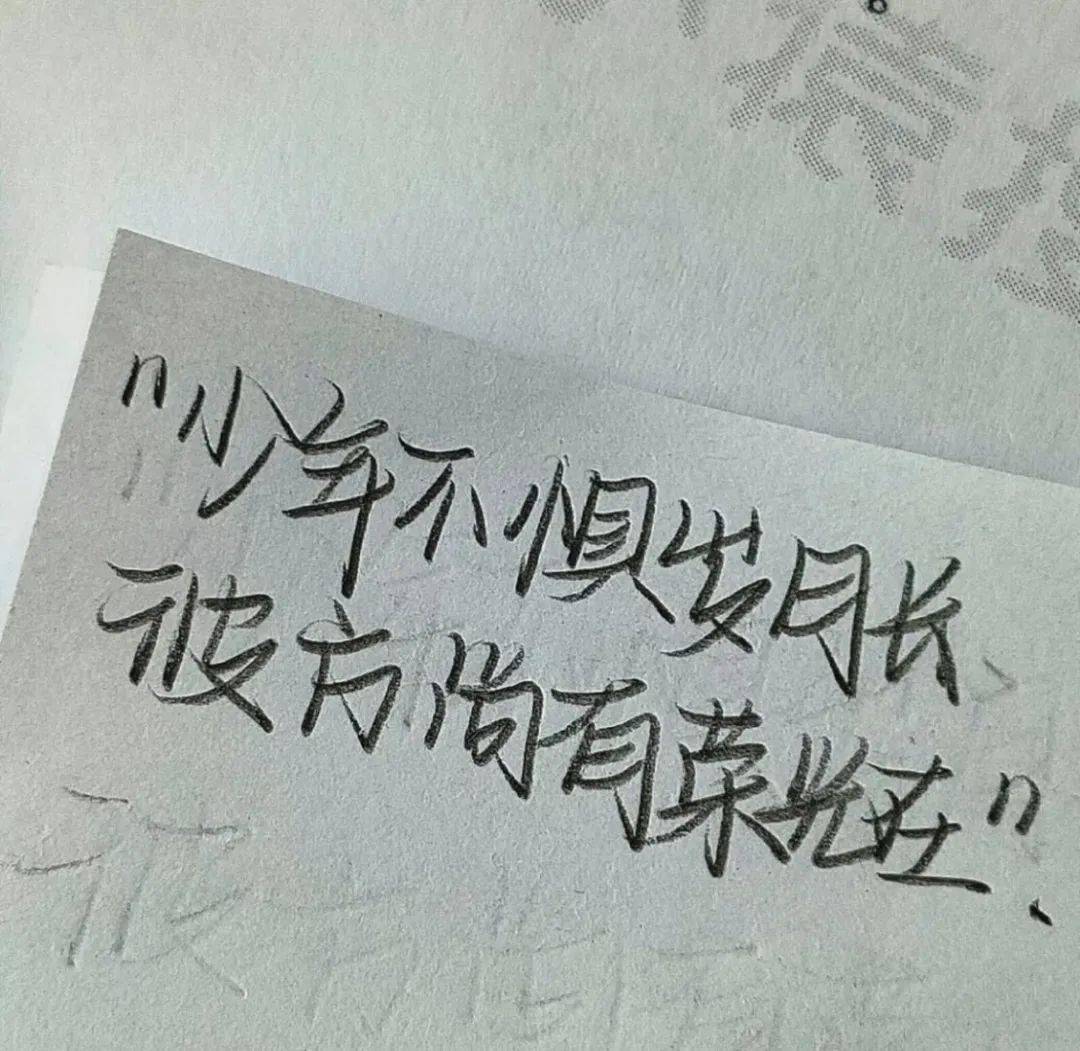 "少年不惧岁月长、
彼方尚有荣光在".